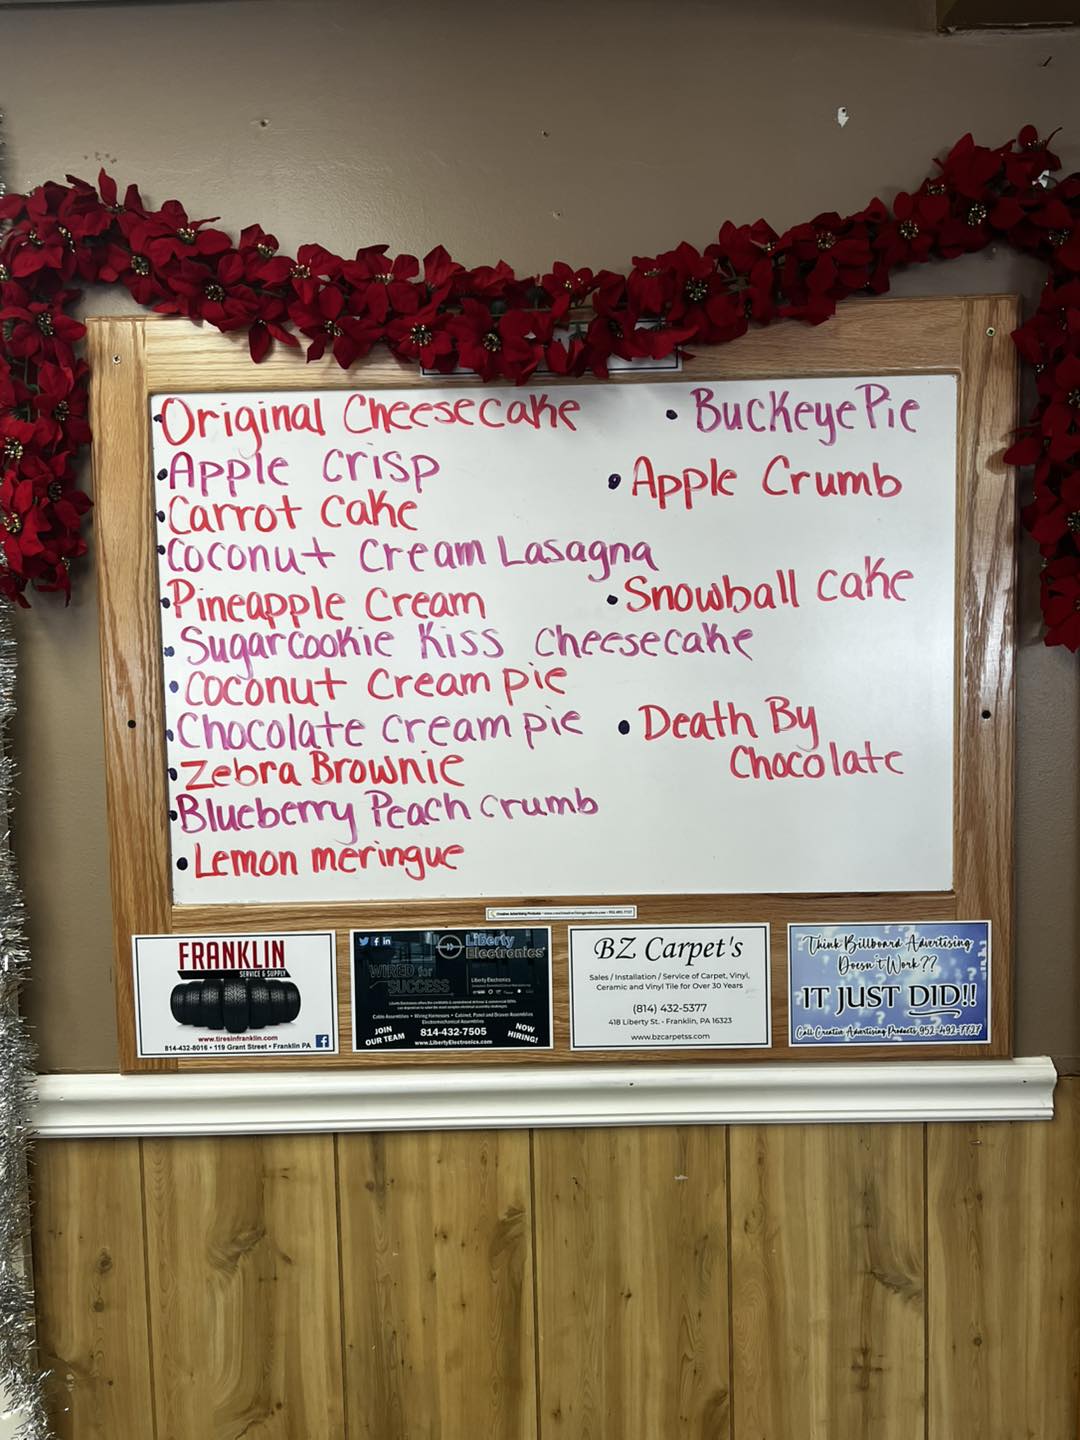 Original Cheesecake
Apple Crisp
Carrot Cake
Coconut Cream Lasagna
Pineapple Cream
Sugarcookie Kiss Cheesecake
Coconut Cream pie
Chocolate Cream pie
Zebra Brownie
Blueberry Peach Crumb
Lemon meringue
Buckeye Pie
Apple Crumb
Snowball Cake
Death By
Chocolate
FRANKLIN
SERVICE & SUPPLY
www.tiresinfranklin.com
814-432-8016 • 119 Grant Street • Franklin PA
Liberty
Electronics
WIRED for
SUCCESS
Liberty Electronics
Cable Assemblies • Wiring Harnesses • Cabinet, Panel and Drawer Assemblies
Electromechanical Assemblies
JOIN
OUR TEAM
814-432-7505
www.LibertyElectronics.com
NOW
HIRING!
BZ Carpet's
Sales / Installation / Service of Carpet, Vinyl,
Ceramic and Vinyl Tile for Over 30 Years
(814) 432-5377
418 Liberty St. - Franklin, PA 16323
www.bzcarpetss.com
Think Billboard Advertising
Doesn't Work??
IT JUST DID!!
Call Creative Advertising Products 952-492-7727